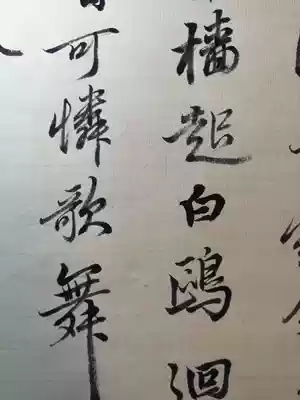 檣起白鷗迴
可憐歌舞